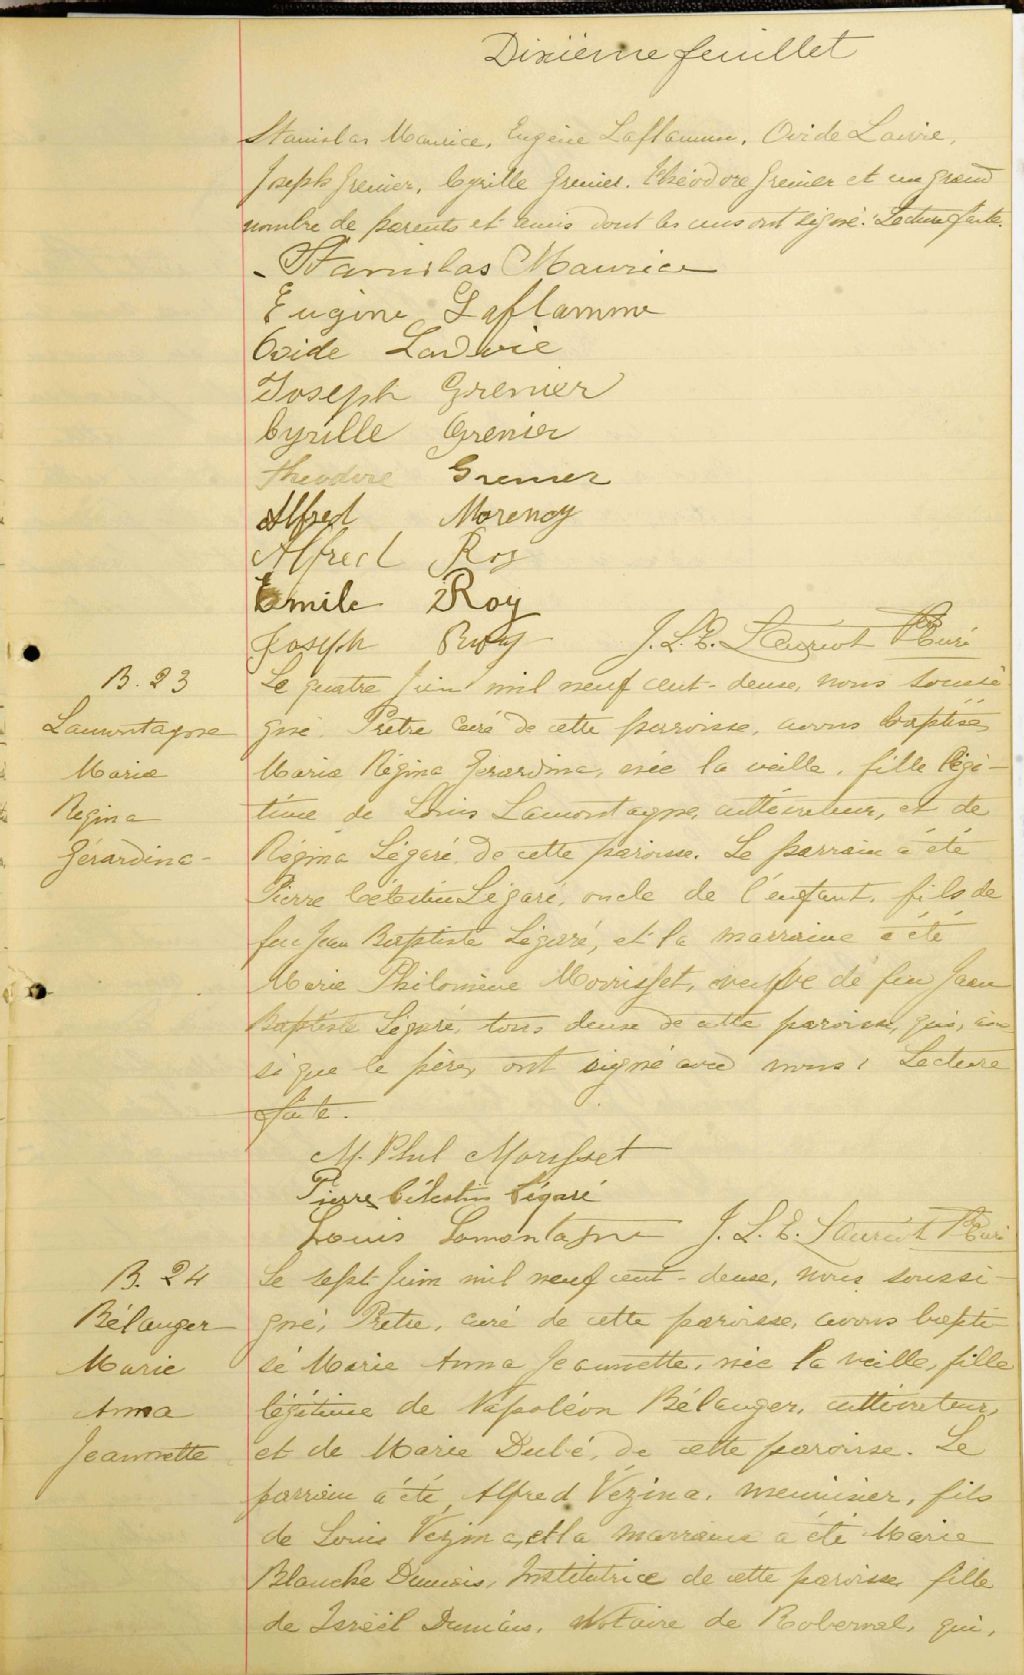 Dixième feuillet
Stanislas Maurice, Eugène Laflamme, Ovide Lavoie,
Joseph Grenier, Cyrille Grenier, Théodore Grenier et un grand
nombre de parents et amis dont les uns ont signé. Lecture faite.
Stanislas Maurice
Eugène Laflamme
Ovide Lavoie
Joseph Grenier
Cyrille Grenier
Theodore Grenier
Alfred Morency
Alfred Roy
Emile Roy
Joseph Roy J. L. E. Laurcot Ptre Curé
B. 23
Lamontagne
Marie
Regina
Gérardina-
Le quatre Juin mil neuf cent-deux, nous soussi-
gné, Prêtre curé de cette paroisse, avons baptisé
Marie Régina Gérardina, née la veille, fille légi-
time de Louis Lamontagne, cultivateur, et de
Régina Légaré, de cette paroisse. Le parrain a été
Pierre Célestin Légaré, oncle de l'enfant, fils de
feu Jean Baptiste Légaré, et la marraine a été
Marie Philomène Morrisset, veuve de feu Jean
Baptiste Légaré, tous deux de cette paroisse, qui, ain
si que le père, ont signé avec nous. Lecture
faite.
M. Phil Morisset
Pierre Célestin Légaré
Louis Lamontagne J. L. E. Ptre Curé
B. 24
Bélanger
Marie
Anna
Jeannette
Le sept Juin mil neuf cent-deux, nous soussi-
gné, Prêtre, curé de cette paroisse, avons bapti
sé Marie Anna Jeannette, née la veille, fille
légitime de Napoléon Bélanger, cultivateur,
et de Marie Dubé, de cette paroisse. Le
parrain a été, Alfred Vézina, menuisier, fils
de Louis Vézina, et la marraine a été Marie
Blanche Dumais, Institutrice de cette paroisse, fille
de Israël Dumais, Notaire de Roberval, qui,